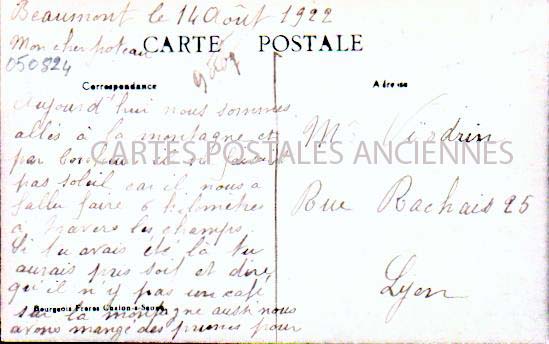 Beaumont le 14 Août 1922
Mon cher poteau
CARTE POSTALE
050824
Correspondance
Adresse
Aujourd'hui nous sommes
allés à la montagne et
par bonheur il ne faisait
pas soleil car il nous a
fallu faire 6 kilomètres
à travers les champs.
Si tu avais été là tu
aurais pris soif et dire
qu'il n'y pas un café
sur la montagne aussi nous
avons mangé des prunes pour
Mr
Rue Rachais 25
Lyon
CARTES POSTALES ANCIENNES
Bourgeois Frères